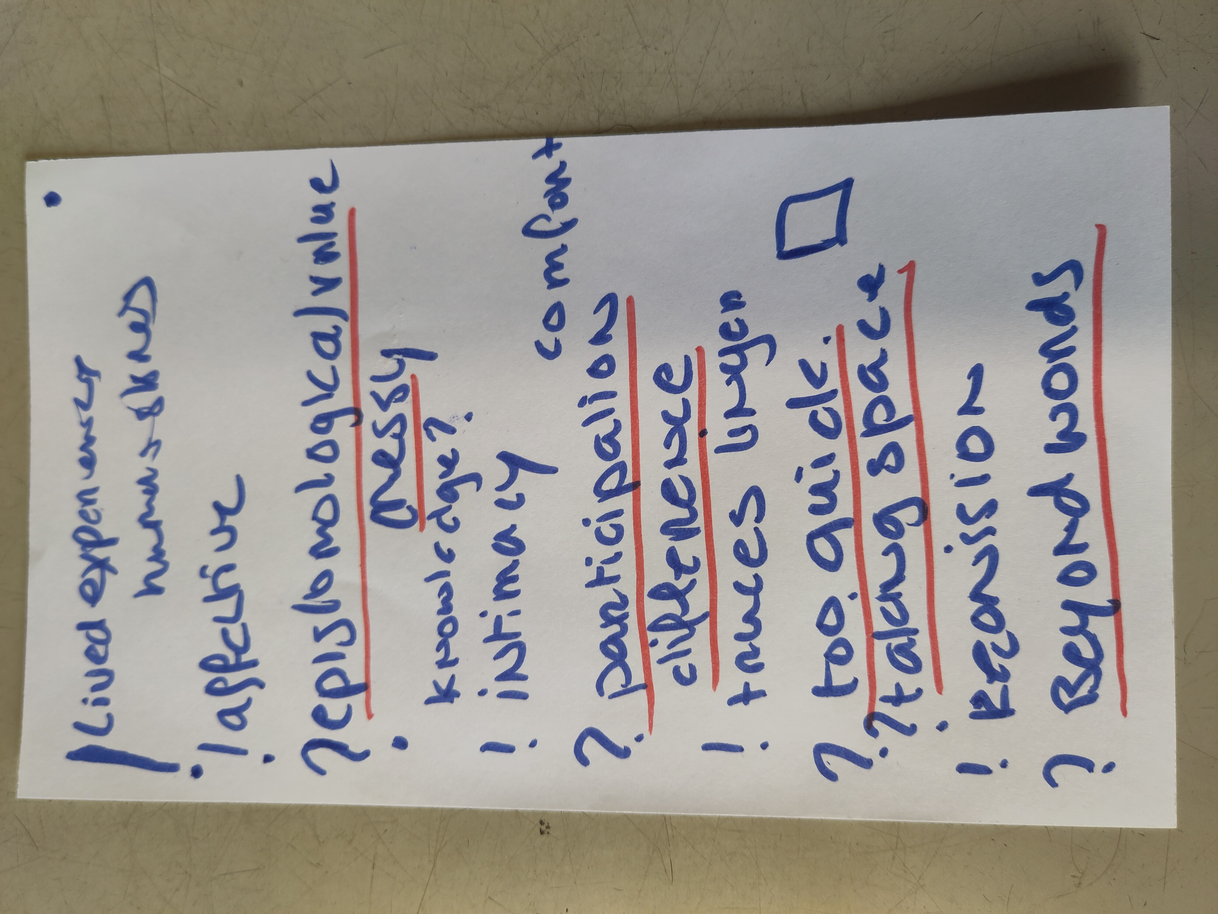 ! Lived experiences
! affective
? epistomological value
messy
knowledge?
! intimacy
comfort
? participation
difference
! traces linger
? too quick.
? taking space
!
? Beyond words